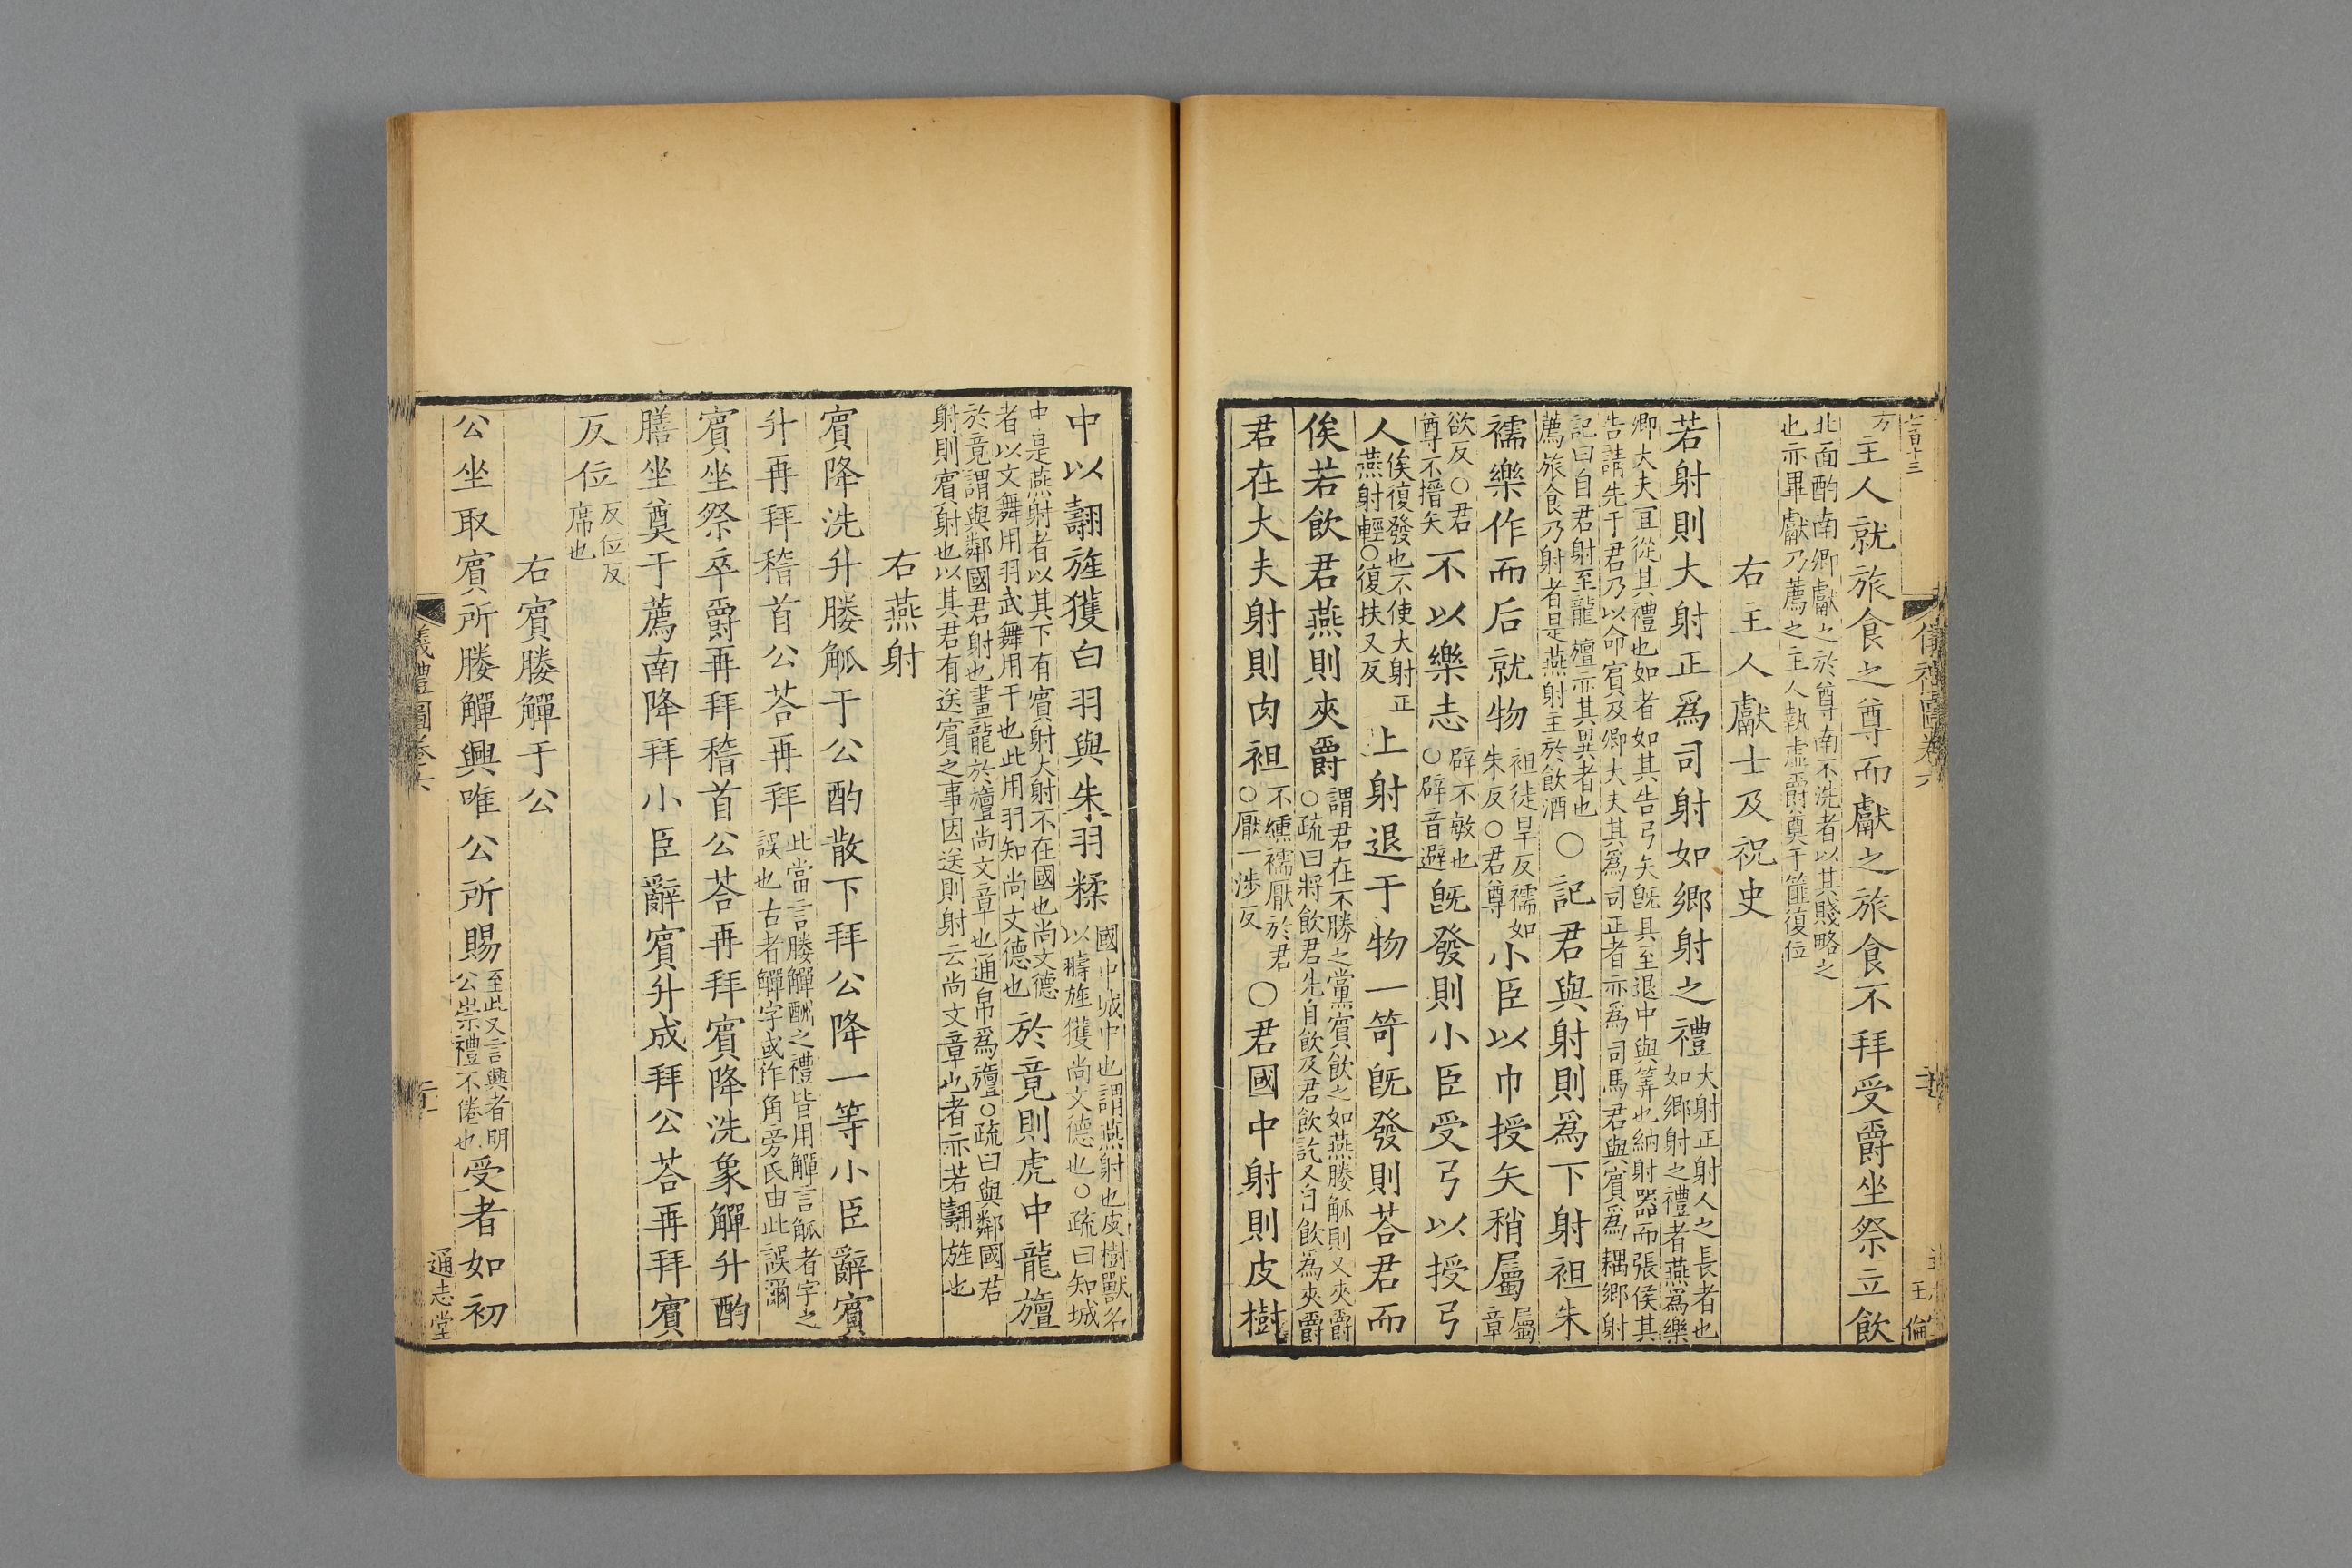 七百十三
方
主人就旅食之尊而獻之旅食不拜受爵坐祭立飲
北面酌南鄉獻之於尊南不洗者以其賤略之
也亦畢獻乃薦之主人執虛爵奠于篚復位
右主人獻士及祝史
若射則大射正爲司射如鄉射之禮
大射正射人之長者也
如鄉射之禮者燕爲樂
卿大夫宜從其禮也如者如其告弓矢旣具至退中與筭也納射器而張侯其
告請先于君乃以命賓及卿大夫其爲司正者亦爲司馬君與賓爲耦鄉射
記曰自君射至龍旜亦其異者也
薦旅食乃射者是燕射主於飲酒
〇記君與射則爲下射袒朱
襦樂作而后就物
袒徒旱反襦如
朱反〇君尊
小臣以巾授矢稍屬
屬
章
欲反〇君
尊不搢矢
不以樂志
辟不敏也
〇辟音避
旣發則小臣受弓以授弓
人
俟復發也不使大射正
燕射輕〇復扶又反
上射退于物一笴旣發則荅君而
俟若飲君燕則夾爵
謂君在不勝之黨賓飲之如燕媵觚則又夾爵
〇疏曰將飲君先自飲及君飲訖又自飲爲夾爵
君在大夫射則肉袒
不纁襦厭於君
〇厭一涉反
〇君國中射則皮樹
儀禮圖卷六
王倫
中以翿旌獲白羽與朱羽糅
國中城中也謂燕射也皮樹獸名
以翿旌獲尚文德也〇疏曰知城
中是燕射者以其下有賓射大射不在國也尚文德
者以文舞用羽武舞用干也此用羽知尚文德也
於竟則虎中龍旜
於竟謂與鄰國君射也畫龍於旜尚文章也通帛爲旜〇疏曰與鄰國君
射則賓射也以其君有送賓之事因送則射云尚文章也者亦若翿旌也
右燕射
賓降洗升媵觚于公酌散下拜公降一等小臣辭賓
升再拜稽首公荅再拜
此當言媵觶酬之禮皆用觶言觚者字之
誤也古者觶字或作角旁氏由此誤爾
賓坐祭卒爵再拜稽首公荅再拜賓降洗象觶升酌
膳坐奠于薦南降拜小臣辭賓升成拜公荅再拜賓
反位
反位反
席也
右賓媵觶于公
公坐取賓所媵觶興唯公所賜
至此又言興者明
公崇禮不倦也
受者如初
儀禮圖卷六
通志堂